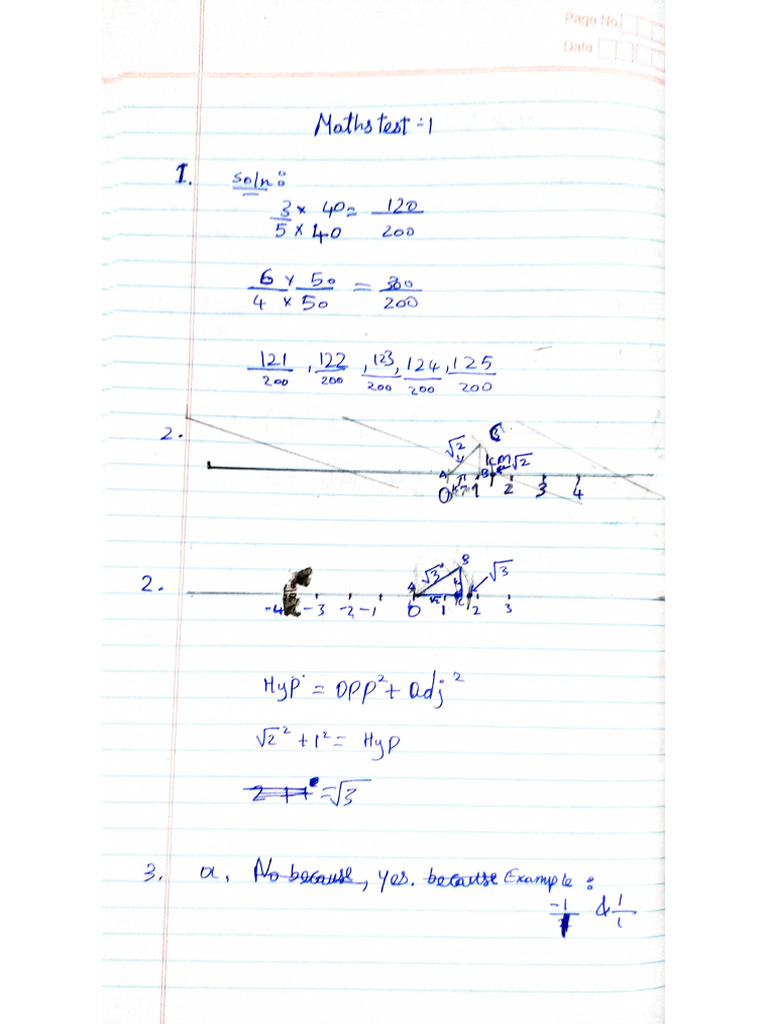 Page No.
Date
Maths test = 1
1. Soln:
3 × 40 = 120
5 × 40 200
6 × 50 = 300
4 × 50 200
121 , 122 , 123 , 124 , 125
200 200 200 200 200
2.
√2 1cm √2
A B
0 1 2 3 4
2.
√3 B √3
A √2 1 C
-4 -3 -2 -1 0 1 2 3
Hyp = opp² + adj²
√2² + 1² = Hyp
2 + 1 = √3
3. a, No because, yes. because Example:
-1 & 1
1 1